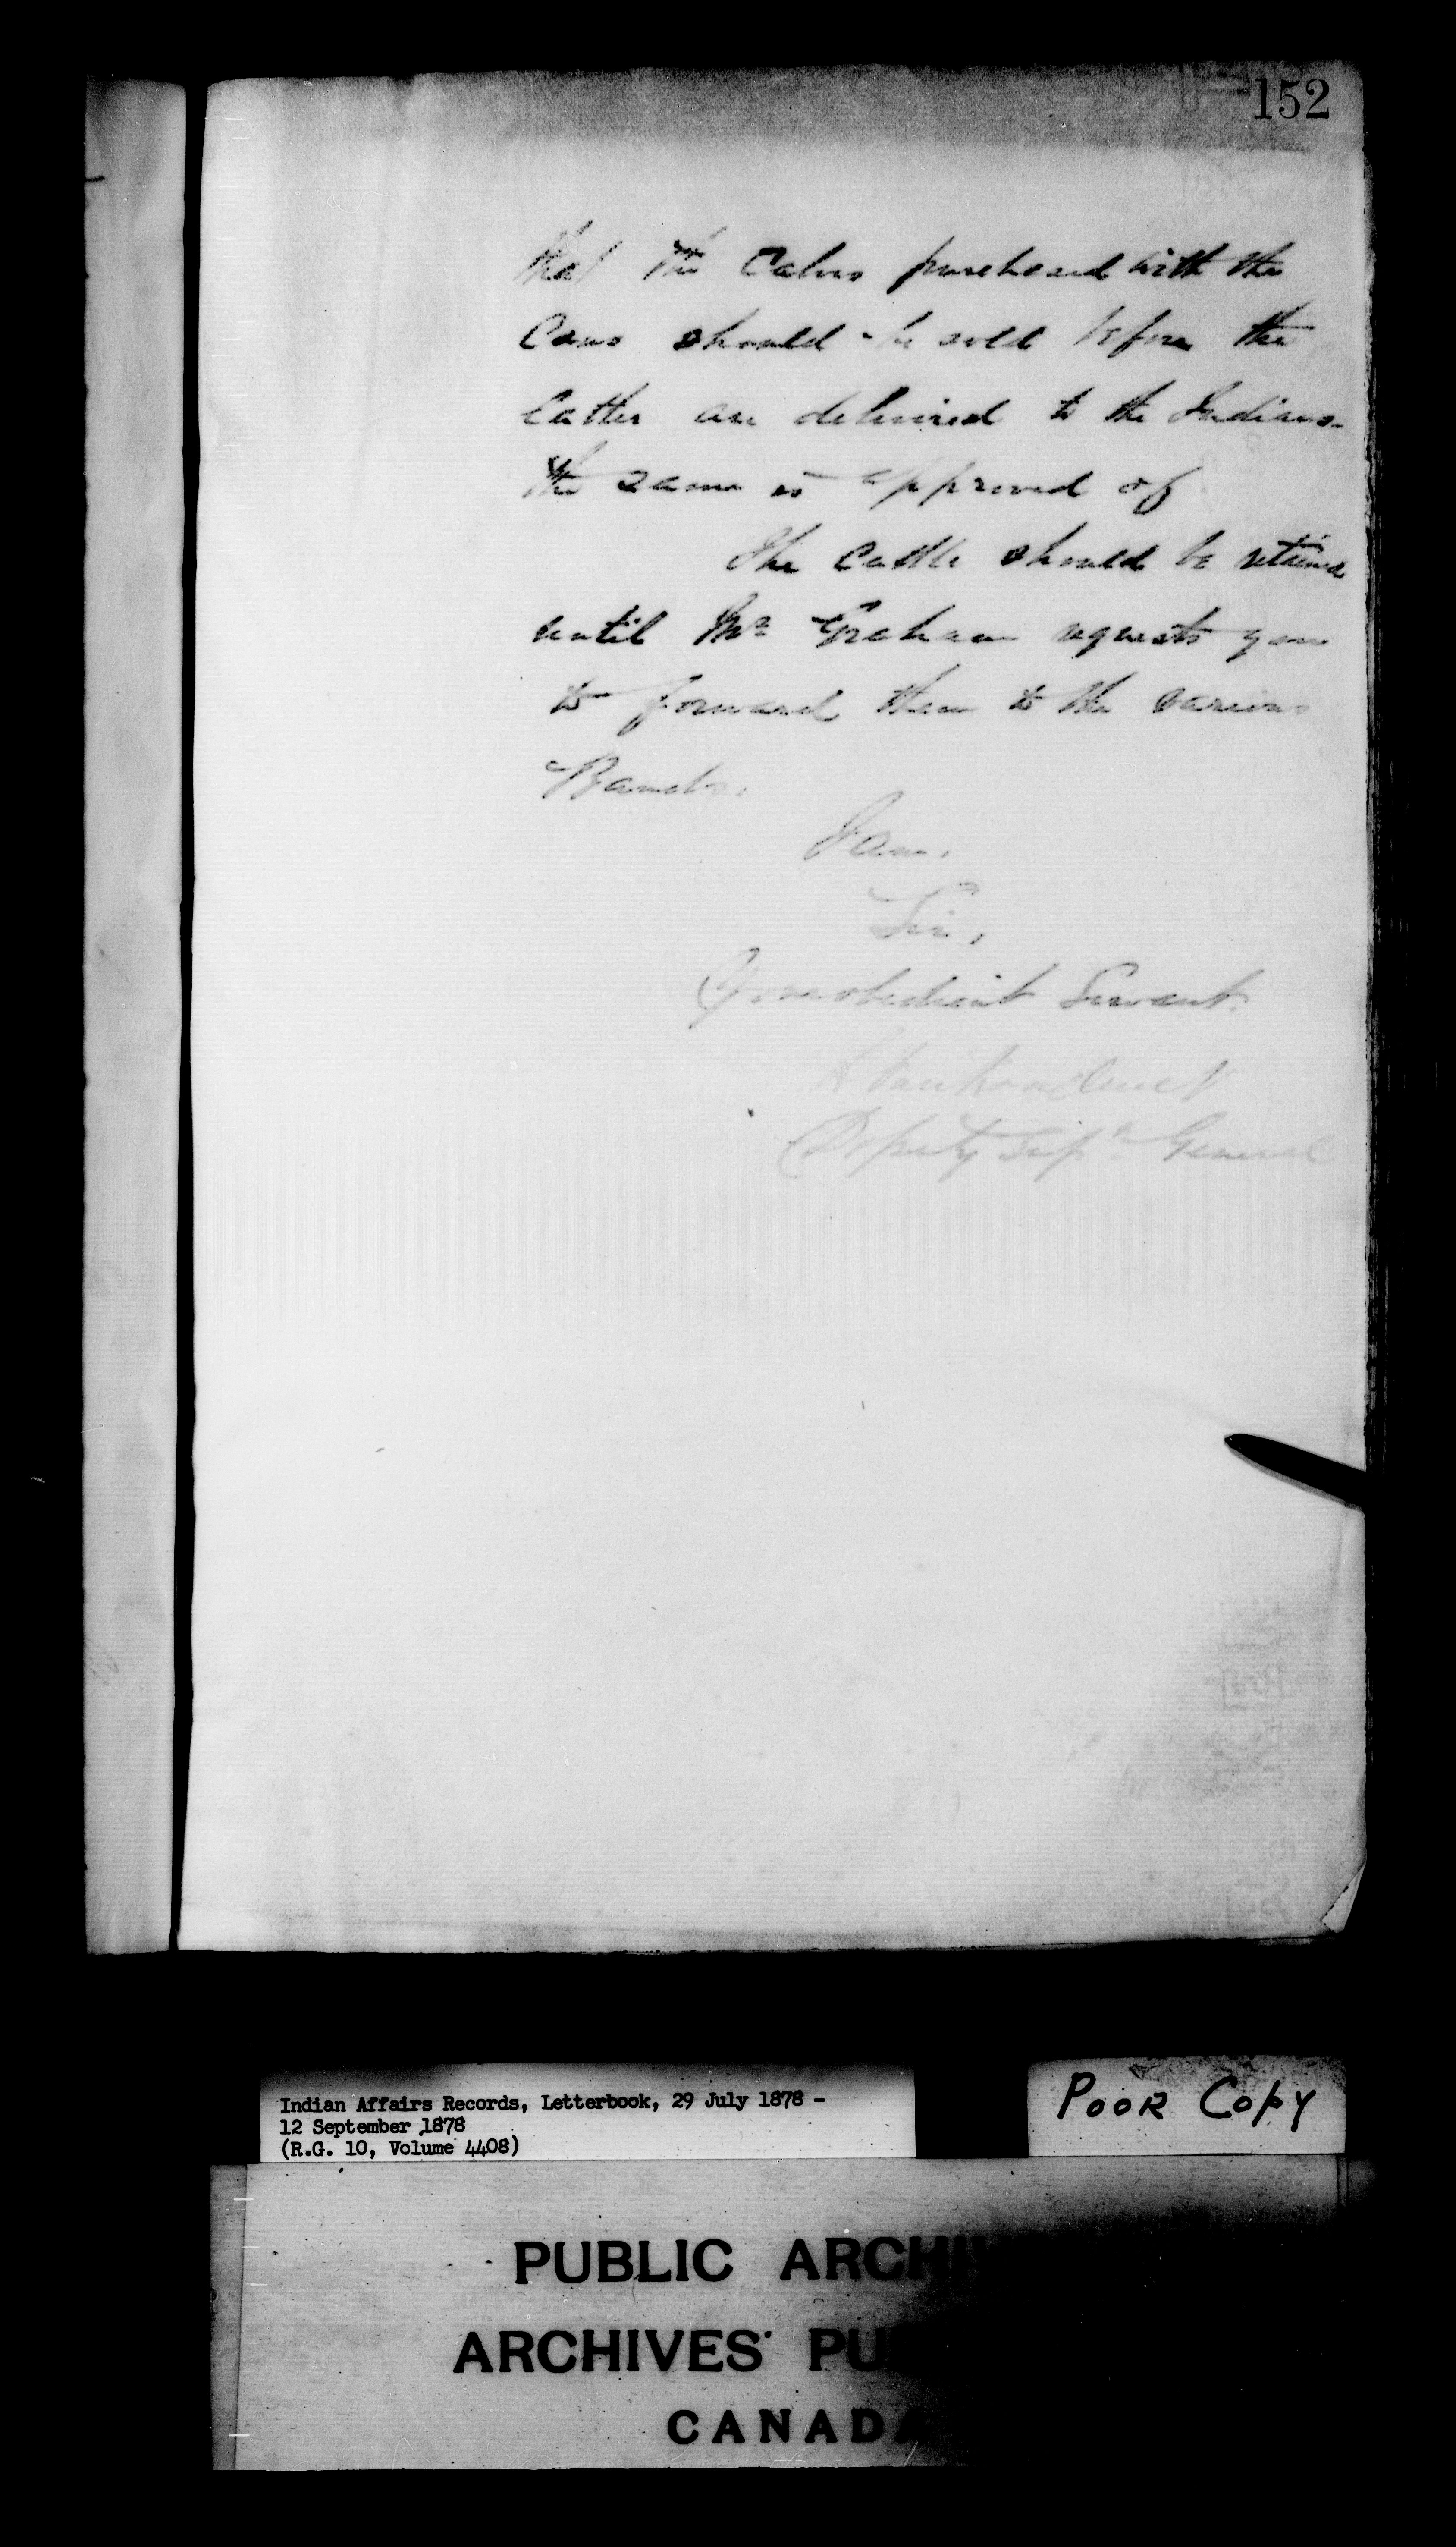 152
that the Calves purchased with the
Cows should be sold before the
latter are delivered to the Indians-
the same is approved of
The Cattle should be retained
until Mr Graham requests you
to forward them to the various
Bands.
I am,
Sir,
Your obedient Servant.
L Vankoughnet
Deputy Supt General
Indian Affairs Records, Letterbook, 29 July 1878 -
12 September 1878
(R.G. 10, Volume 4408)
POOR COPY
PUBLIC ARCHI
ARCHIVES PU
CANADA